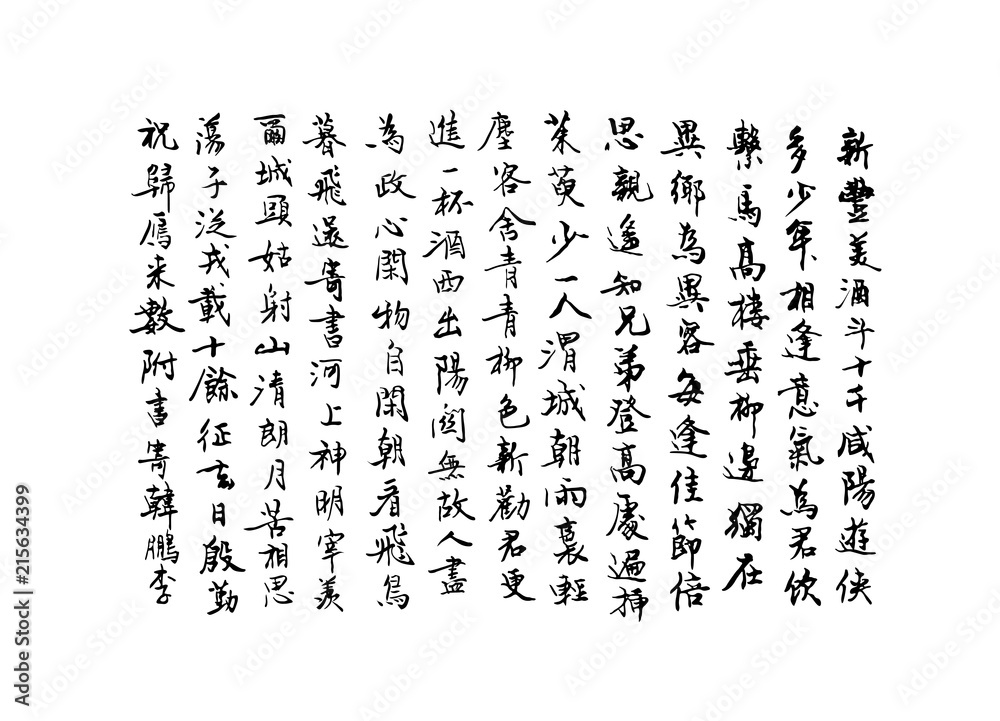 新豐美酒斗十千咸陽遊俠
多少年相逢意氣為君飲
繫馬高樓垂柳邊獨在
異鄉為異客每逢佳節倍
思親遙知兄弟登高處遍插
茱萸少一人渭城朝雨裛輕
塵客舍青青柳色新勸君更
進一杯酒西出陽關無故人盡
為政心閑物自閑朝看飛鳥
暮飛還寄書河上神明宰羨
爾城頭姑射山清朗月苦相思
蕩子從戎載十餘征去日殷勤
祝歸鴈来數附書寄韓鵬李
Adobe Stock | #215634399